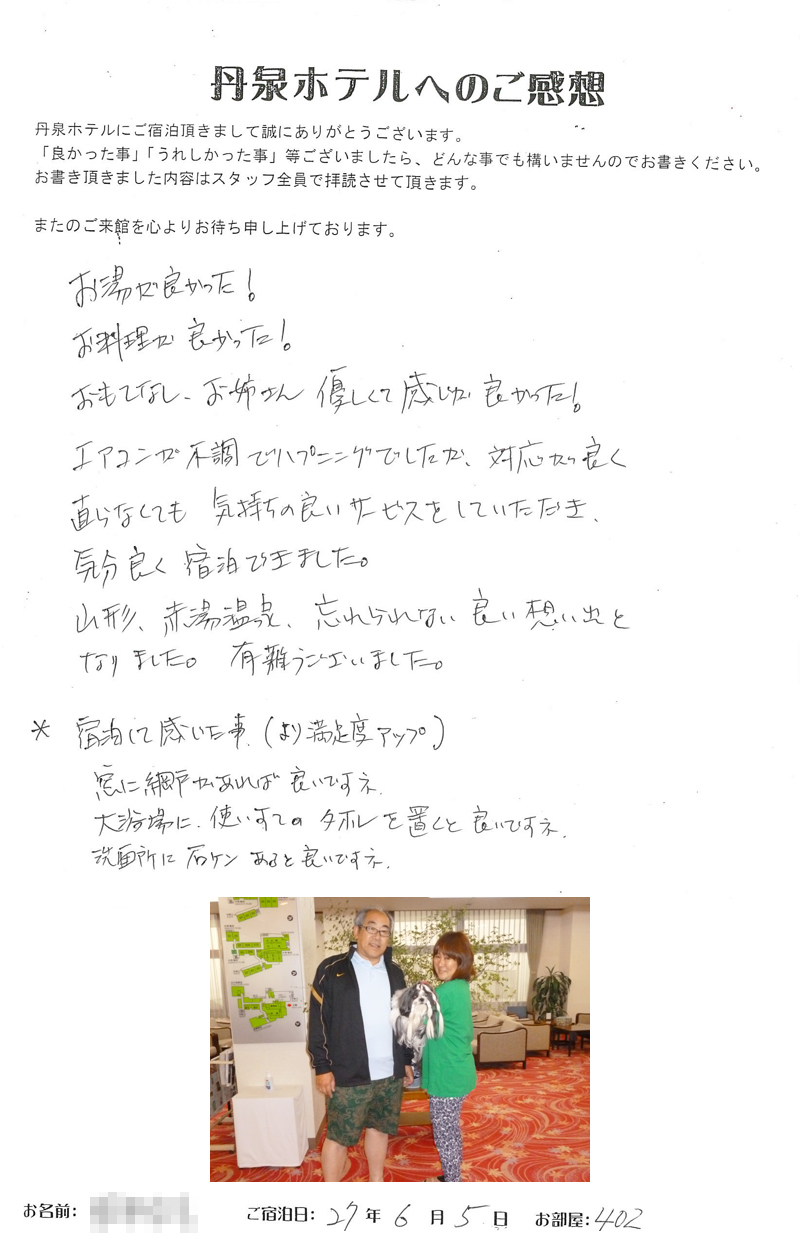 丹泉ホテルへのご感想
丹泉ホテルにご宿泊頂きまして誠にありがとうございます。
「良かった事」「うれしかった事」等ございましたら、どんな事でも構いませんのでお書きください。
お書き頂きました内容はスタッフ全員で拝読させて頂きます。
またのご来館を心よりお待ち申し上げております。
お湯が良かった!
お料理が良かった!
おもてなし、お姉さん 優しくて感じが良かった!
エアコンが不調でハプニングでしたが、対応が良く
直らなくても 気持ちの良いサービスをしていただき、
気分良く宿泊できました。
山形、赤湯温泉、忘れられない良い想い出と
なりました。有難うございました。
* 宿泊して感じた事、(より満足度アップ)
窓に網戸があれば良いですネ.
大浴場に、使いすての タオルを置くと良いですネ.
洗面所に石ケンあると良いですネ.
お名前: ご宿泊日: 27年 6月 5日 お部屋: 402